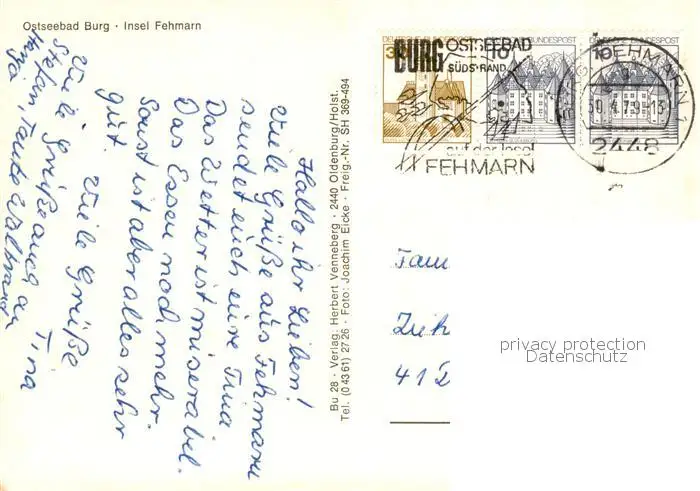 Ostseebad Burg · Insel Fehmarn
Hallo ihr Lieben!
Viele Grüße aus Fehmarn
sendet euch eure Tina
Das Wetter ist miserabel.
Das Essen noch mehr.
Sonst ist aber alles sehr
gut.
Viele Grüße
Tina
Viele Grüße auch an
Stefan, Tante Waltraud
Bu 28 · Verlag: Herbert Venneberg · 2440 Oldenburg/Holst.
Tel. (0 43 61) 27 26 · Foto: Joachim Eicke · Freig.-Nr. SH 369-494
DEUTSCHE BUNDESPOST
DEUTSCHE BUNDESPOST
DEUTSCHE BUNDESPOST
10
10
BURG OSTSEEBAD
SÜDSTRAND
auf der Insel
FEHMARN
FEHMARN
2448
Fam
41
privacy protection
Datenschutz